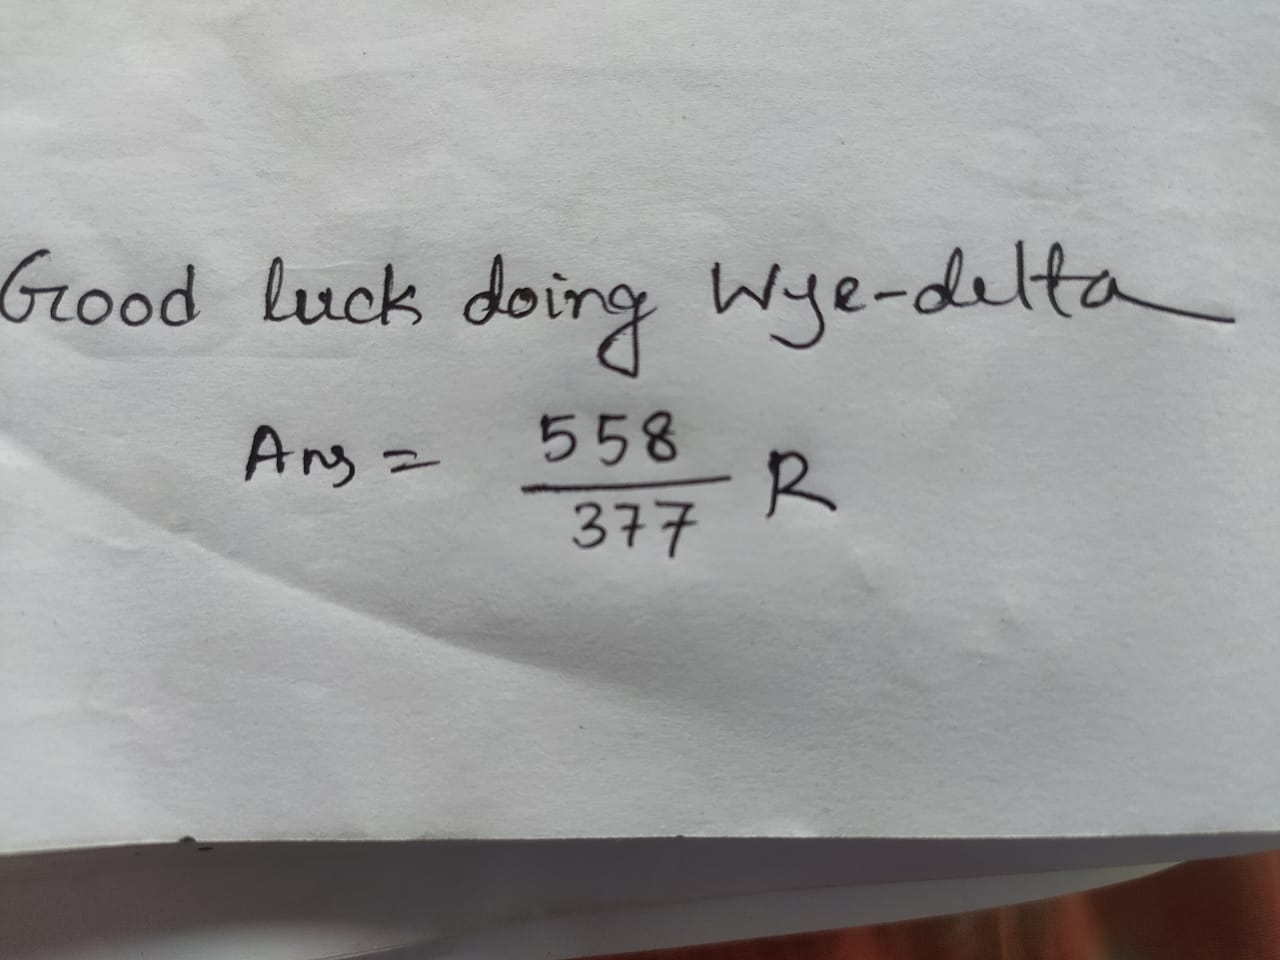 Good luck doing Wye-delta
Ans = 558/377 R